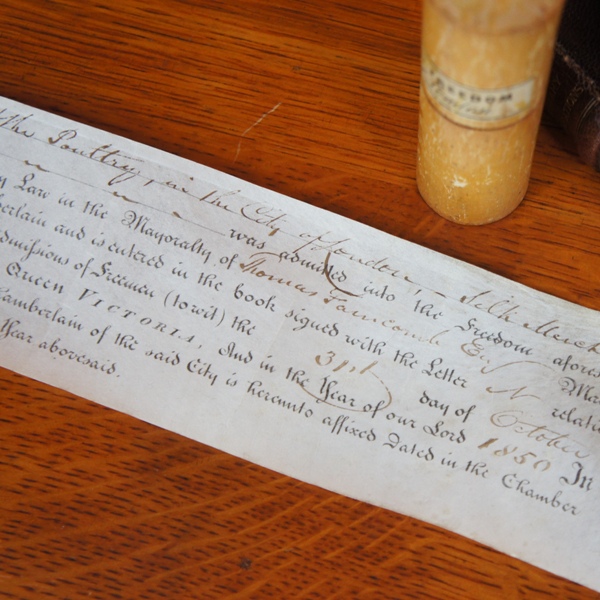 FREEDOM
the Poultry, in the City of London, Silk Merch
was admitted into the Freedom afores
Law in the Mayoralty of Thomas Farncomb Esq Ma
berlain and is entered in the book signed with the Letter N relati
dmissions of Freemen (to wit) the 31st day of October
Queen VICTORIA, And in the Year of our Lord 1850 In
Chamberlain of the said City is hereunto affixed Dated in the Chamber
Year aforesaid.